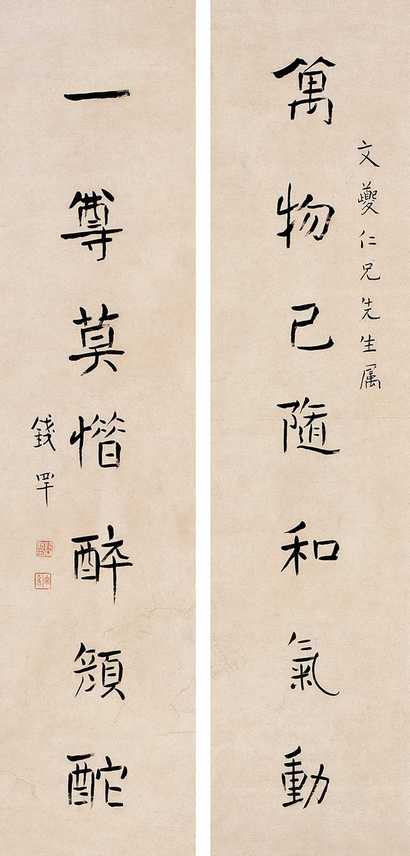 文夔仁兄先生属
萬物已隨和氣動
一尊莫惜醉顔酡
錢罕